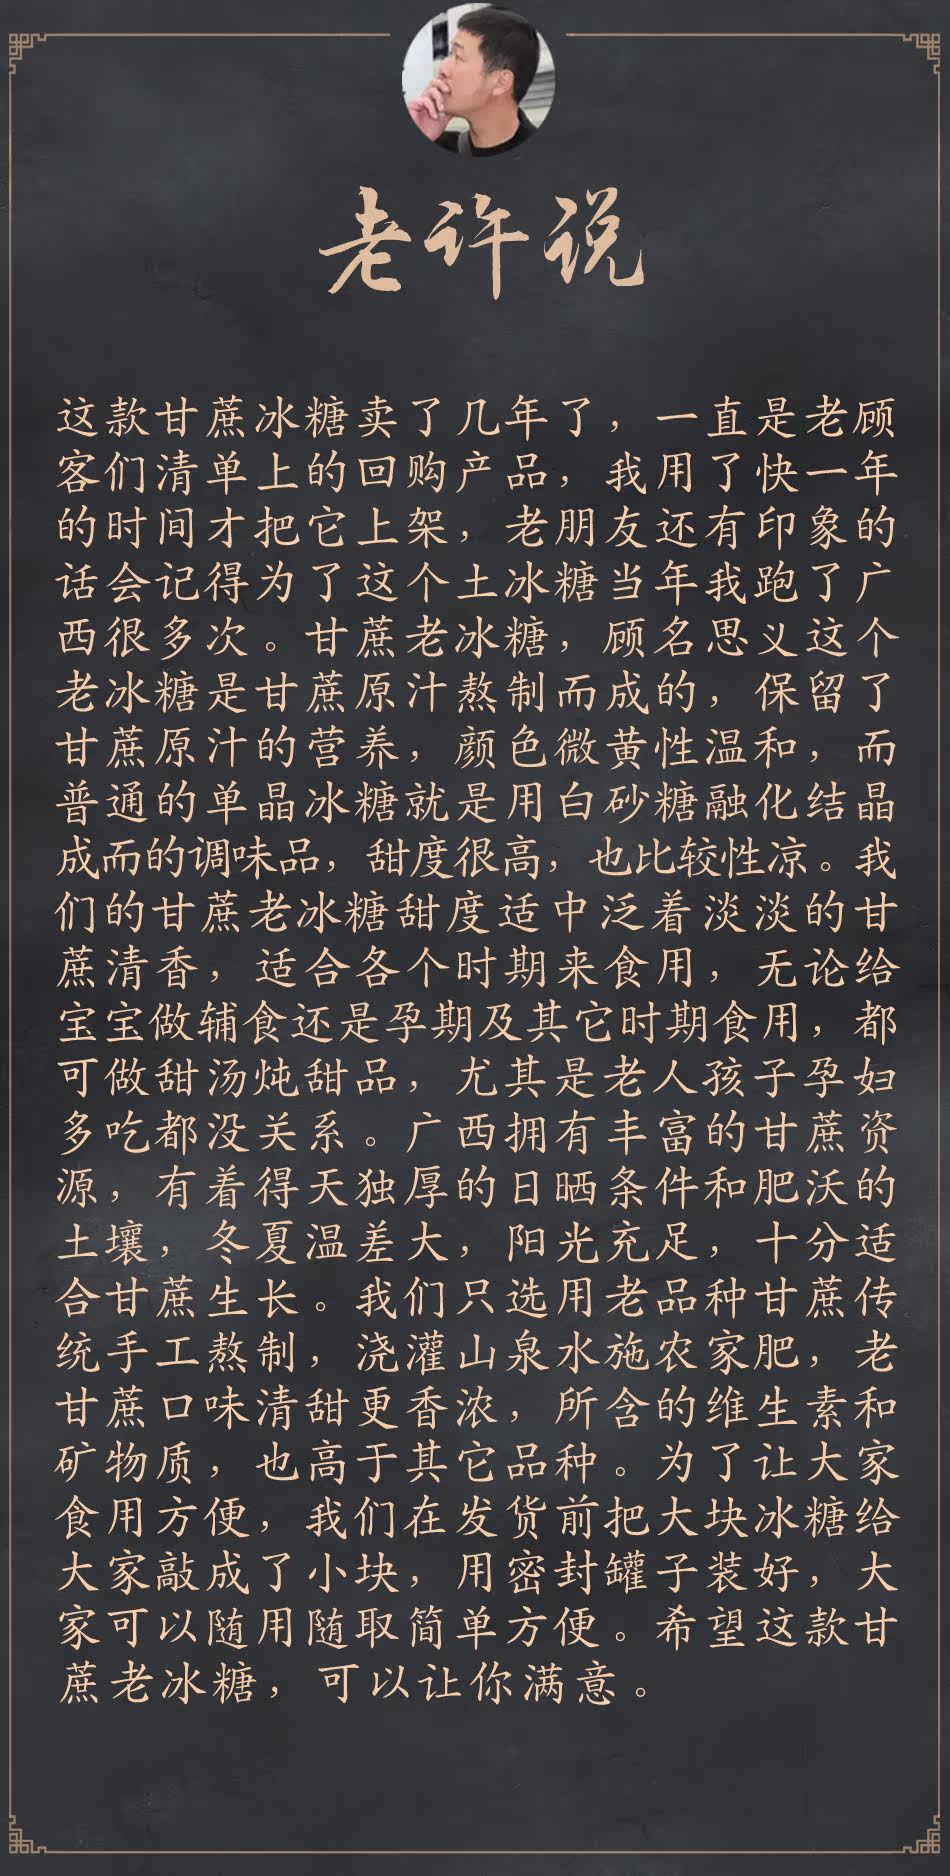 老许说
这款甘蔗冰糖卖了几年了，一直是老顾
客们清单上的回购产品，我用了快一年
的时间才把它上架，老朋友还有印象的
话会记得为了这个土冰糖当年我跑了广
西很多次。甘蔗老冰糖，顾名思义这个
老冰糖是甘蔗原汁熬制而成的，保留了
甘蔗原汁的营养，颜色微黄性温和，而
普通的单晶冰糖就是用白砂糖融化结晶
成而的调味品，甜度很高，也比较性凉。我
们的甘蔗老冰糖甜度适中泛着淡淡的甘
蔗清香，适合各个时期来食用，无论给
宝宝做辅食还是孕期及其它时期食用，都
可做甜汤炖甜品，尤其是老人孩子孕妇
多吃都没关系。广西拥有丰富的甘蔗资
源，有着得天独厚的日晒条件和肥沃的
土壤，冬夏温差大，阳光充足，十分适
合甘蔗生长。我们只选用老品种甘蔗传
统手工熬制，浇灌山泉水施农家肥，老
甘蔗口味清甜更香浓，所含的维生素和
矿物质，也高于其它品种。为了让大家
食用方便，我们在发货前把大块冰糖给
大家敲成了小块，用密封罐子装好，大
家可以随用随取简单方便。希望这款甘
蔗老冰糖，可以让你满意。